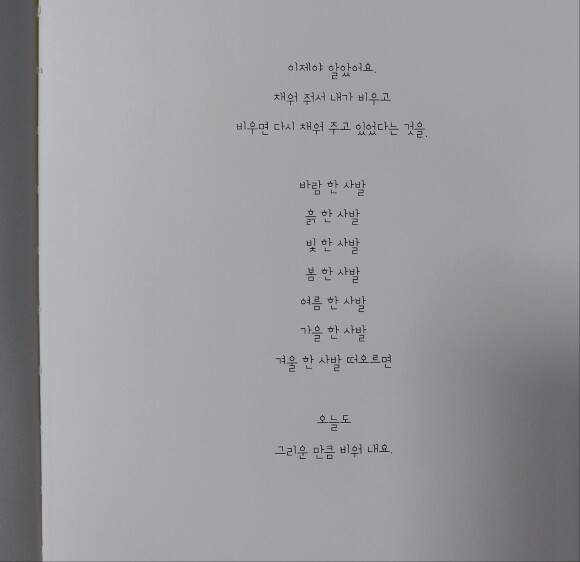 이제야 알았어요.
채워 줘서 내가 비우고
비우면 다시 채워 주고 있었다는 것을.
바람 한 사발
흙 한 사발
빛 한 사발
봄 한 사발
여름 한 사발
가을 한 사발
겨울 한 사발 떠오르면
오늘도
그리운 만큼 비워 내요.